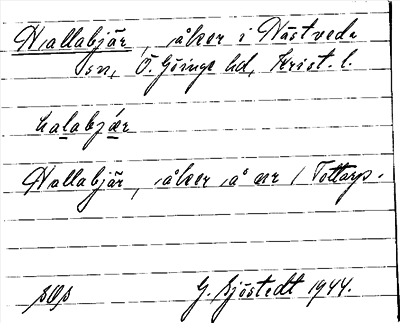 Hallabjär, åker i Nastveda
sn, Ö. Göinge hd, Krist. l.
halabjær
Hallabjär, åker å nr 1 Tottarp.
G. Sjöstedt 1944.